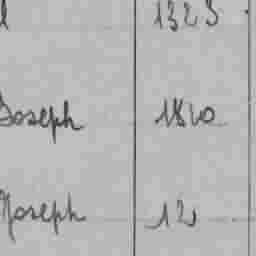 1323
Joseph 1820
Joseph 12